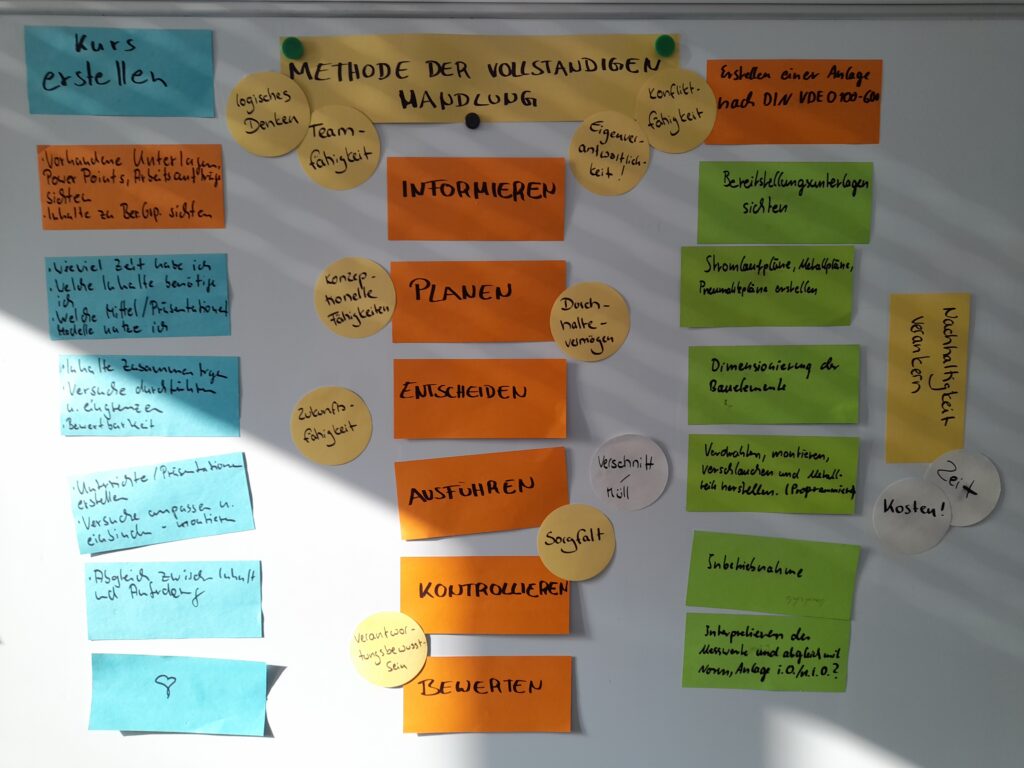 Kurs
erstellen
METHODE DER VOLLSTÄNDIGEN
HANDLUNG
logisches
Denken
Team-
fähigkeit
Eigenver-
antwortlich-
keit!
Konflikt-
fähigkeit
Erstellen einer Anlage
nach DIN VDE 0100-600
• Vorhandene Unterlagen,
Power Points, Arbeitsaufträge
sichten
• Inhalte zu sichten
INFORMIEREN
Bereitstellungsunterlagen
sichten
• Wieviel Zeit habe ich
• Welche Inhalte benötige
ich
• Welche Mittel/Präsentationen
Modelle nutze ich
Konzep-
tionelle
Fähigkeiten
PLANEN
Durch-
halte-
vermögen
Stromlaufpläne, Metallpläne,
Pneumatikpläne erstellen
• Inhalte zusammentragen
• Versuche durchführen
u. eingrenzen
• Bewertbarkeit
Zukunfts-
fähigkeit
ENTSCHEIDEN
Dimensionierung der
Bauelemente
Nachhaltigkeit
verankern
• Unterrichte/Präsentationen
erstellen
• Versuche anpassen u.
einbinden - montieren
AUSFÜHREN
Verschnitt
/
Müll
Sorgfalt
Verdrahten, montieren,
verschlauchen und Metall-
teile herstellen. (Programmieren)
Zeit
Kosten!
• Abgleich zwischen Inhalt
und Anforderung
KONTROLLIEREN
Inbetriebnahme
Verantwor-
tungsbewusst-
sein
BEWERTEN
Interpretieren der
Messwerte und abgleich mit
Norm, Anlage i.O./n.i.O.?